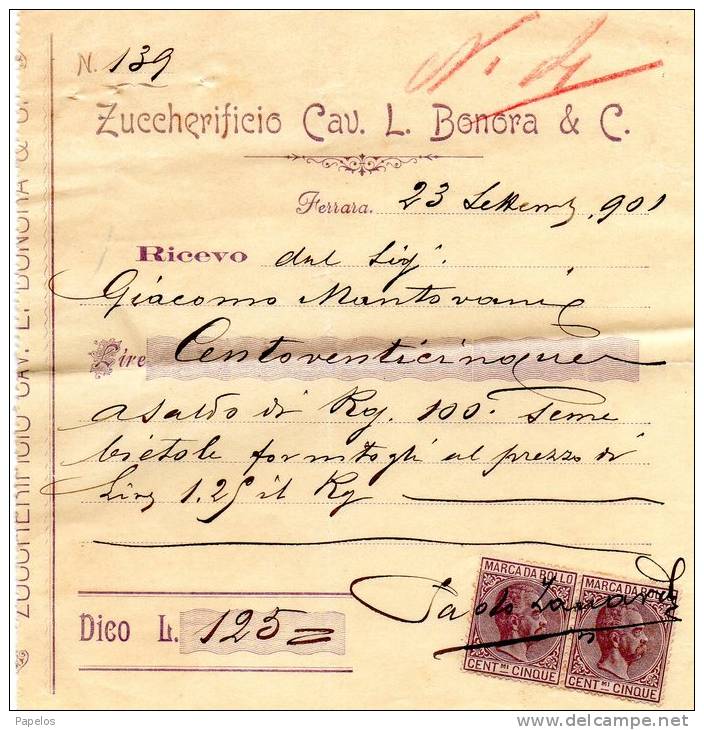 N. 139
N. 4
Zuccherificio Cav. L. Bonora & C.
Ferrara. 23 Settemb. 901
Ricevo dal Sig.
Giacomo Mantovani
Lire Centoventicinque
a saldo di Kg. 100. seme
bietole fornitogli al prezzo di
Lire 1.25 il Kg
Dico L. 125=
Paolo
MARCA DA BOLLO MARCA DA BOLLO
CENT.MI CINQUE CENT.MI CINQUE
ZUCCHERIFICIO CAV. L. BONORA & C.
Papelos
www.delcampe.net